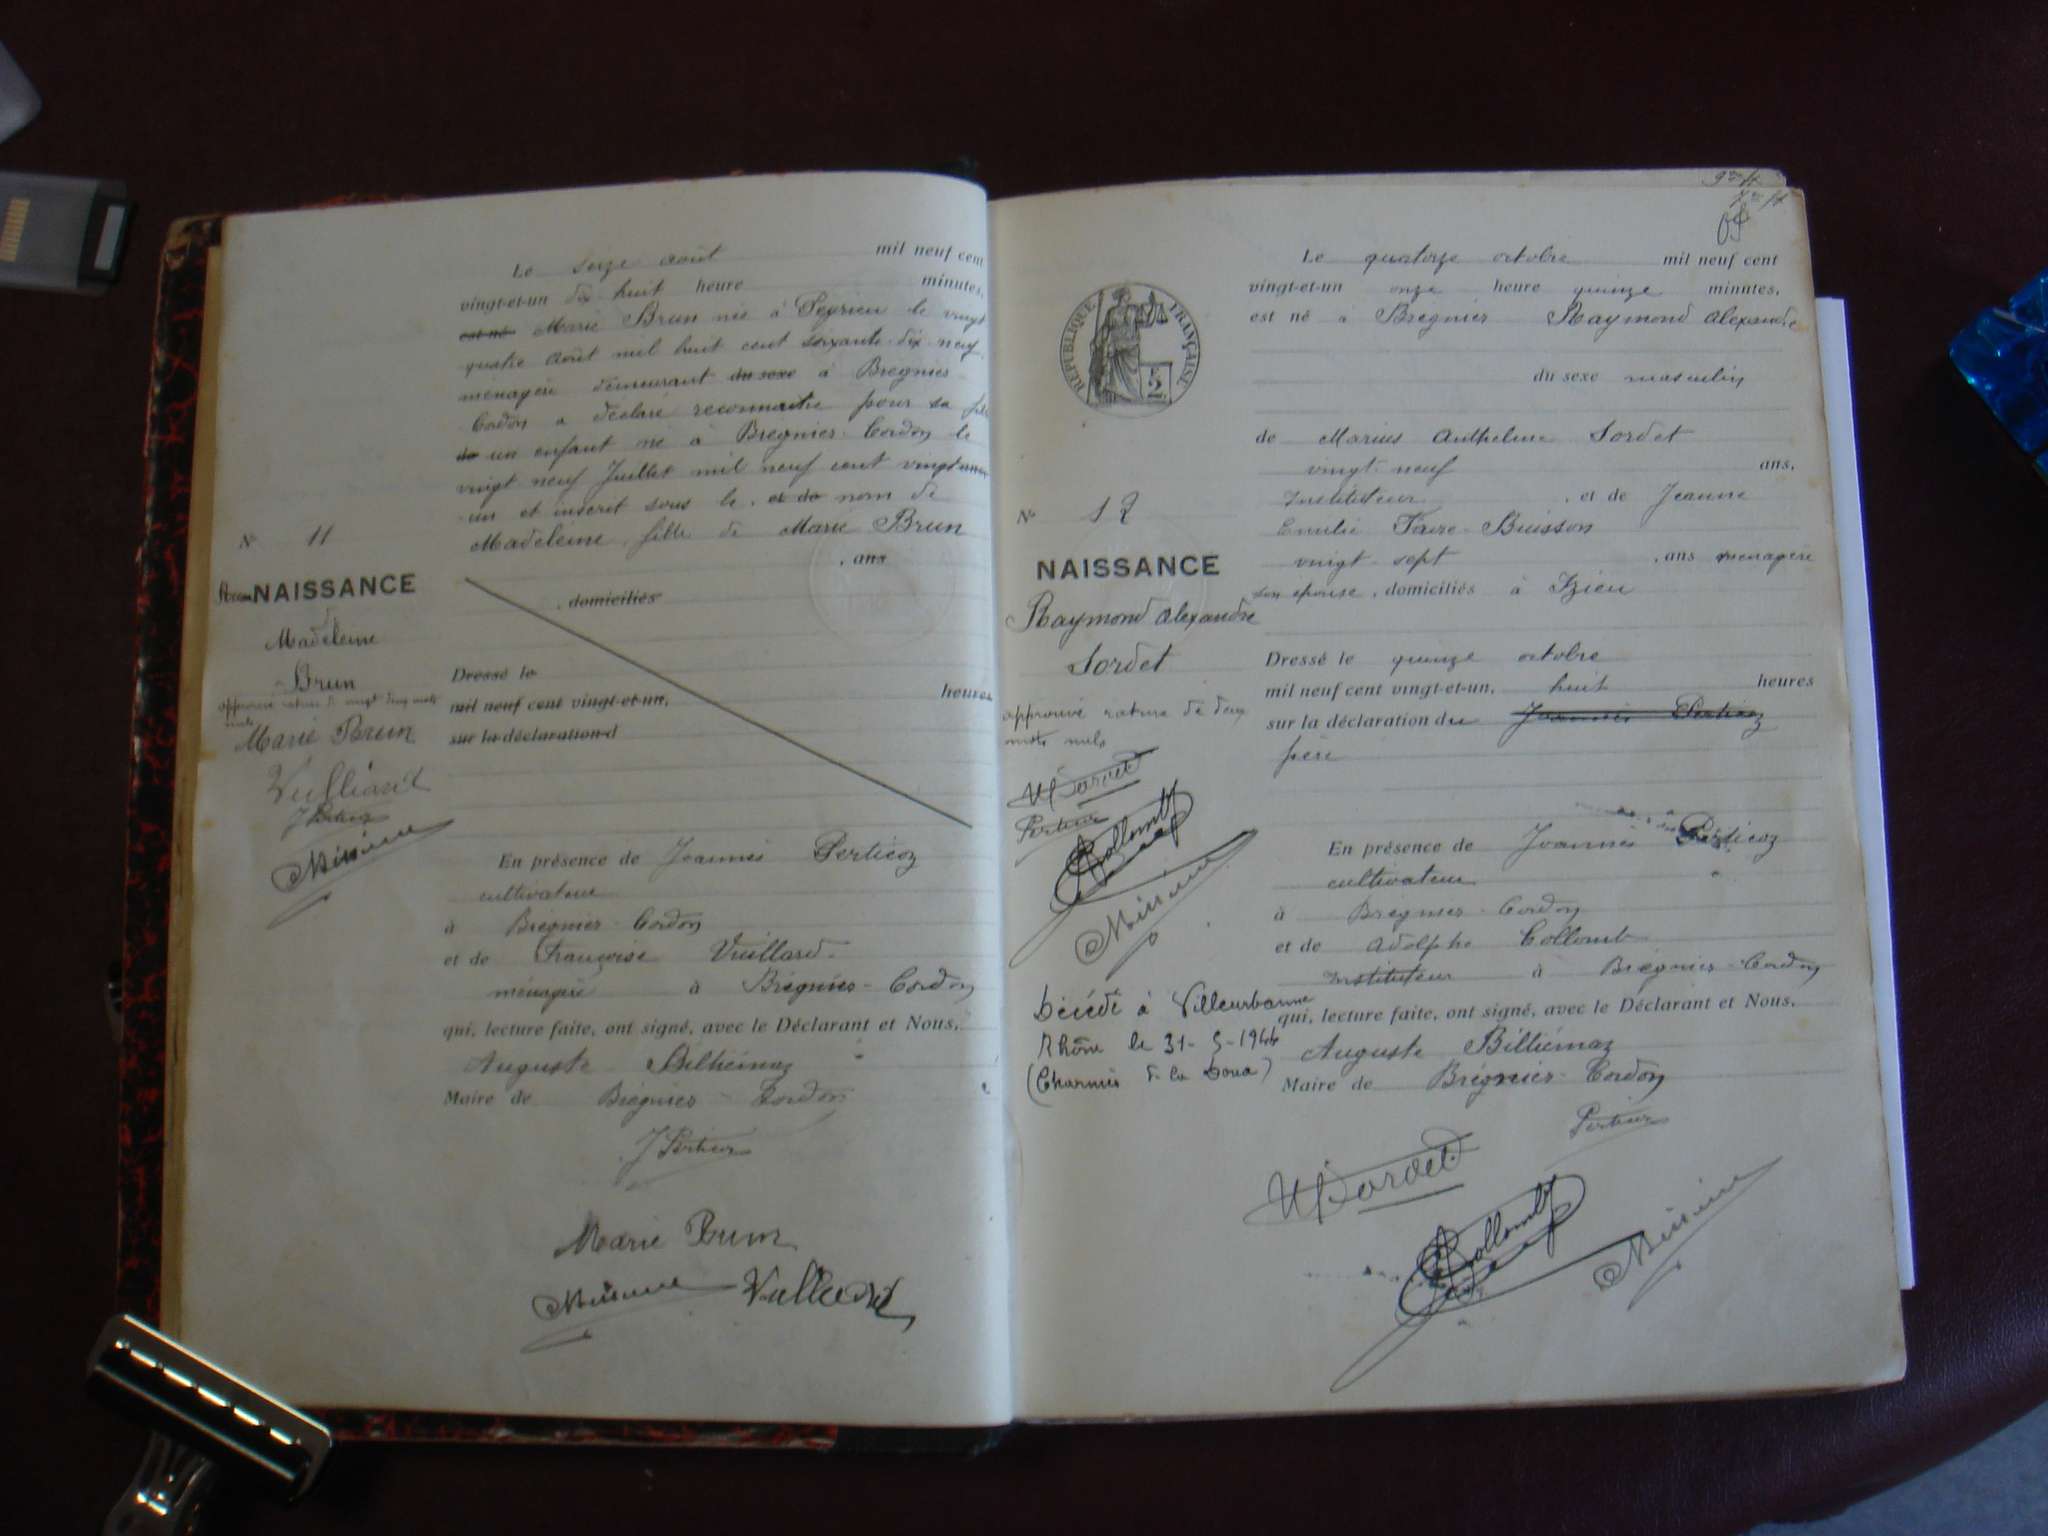 Le seize août mil neuf cent
vingt-et-un dix-huit heure minutes,
est né Marie Brun née à Peyrieu le vingt
quatre août mil huit cent soixante-dix-neuf
ménagère demeurant du sexe à Brégnier
Cordon a déclaré reconnaitre pour sa fille
de un enfant né à Brégnier-Cordon le
vingt neuf Juillet mil neuf cent vingt
un et inscrit sous le et de nom de
Madeleine fille de Marie Brun
, ans
, domiciliés
Dressé le
mil neuf cent vingt-et-un, heures
sur la déclaration d
En présence de Joannès Perticoz
cultivateur
à Brégnier-Cordon
et de Françoise Vuillard
ménagère à Brégnier-Cordon
qui, lecture faite, ont signé, avec le Déclarant et Nous,
Auguste Billiémaz
Maire de Brégnier-Cordon
J Perticoz
Marie Brun
Vuillard
N° 11
NAISSANCE
de
Madeleine
Brun
approuvé rature de vingt cinq mots
nuls
Marie Brun
Vuilliard
J Perticoz
Le quatorze octobre mil neuf cent
vingt-et-un onze heure quinze minutes,
est né à Brégnier Raymond Alexandre
du sexe masculin
de Marius Anthelme Sordet
vingt-neuf ans,
Instituteur, et de Jeanne
Emilie Favre-Buisson
vingt sept, ans ménagère
son épouse, domiciliés à Izieu
Dressé le quinze octobre
mil neuf cent vingt-et-un, huit heures
sur la déclaration du Joannès Perticoz
père
En présence de Joannès Perticoz
cultivateur
à Brégnier-Cordon
et de Adolphe Collomb
Instituteur à Brégnier-Cordon
qui, lecture faite, ont signé, avec le Déclarant et Nous,
Auguste Billiémaz
Maire de Brégnier-Cordon
Perticoz
M Sordet
Collomb
RÉPUBLIQUE FRANÇAISE
N° 12
NAISSANCE
Raymond Alexandre
Sordet
approuvé rature de deux
mots nuls
M Sordet
Perticoz
Collomb
Décédé à Villeurbanne
Rhône le 31-5-1944
(Charnier de la Doua)